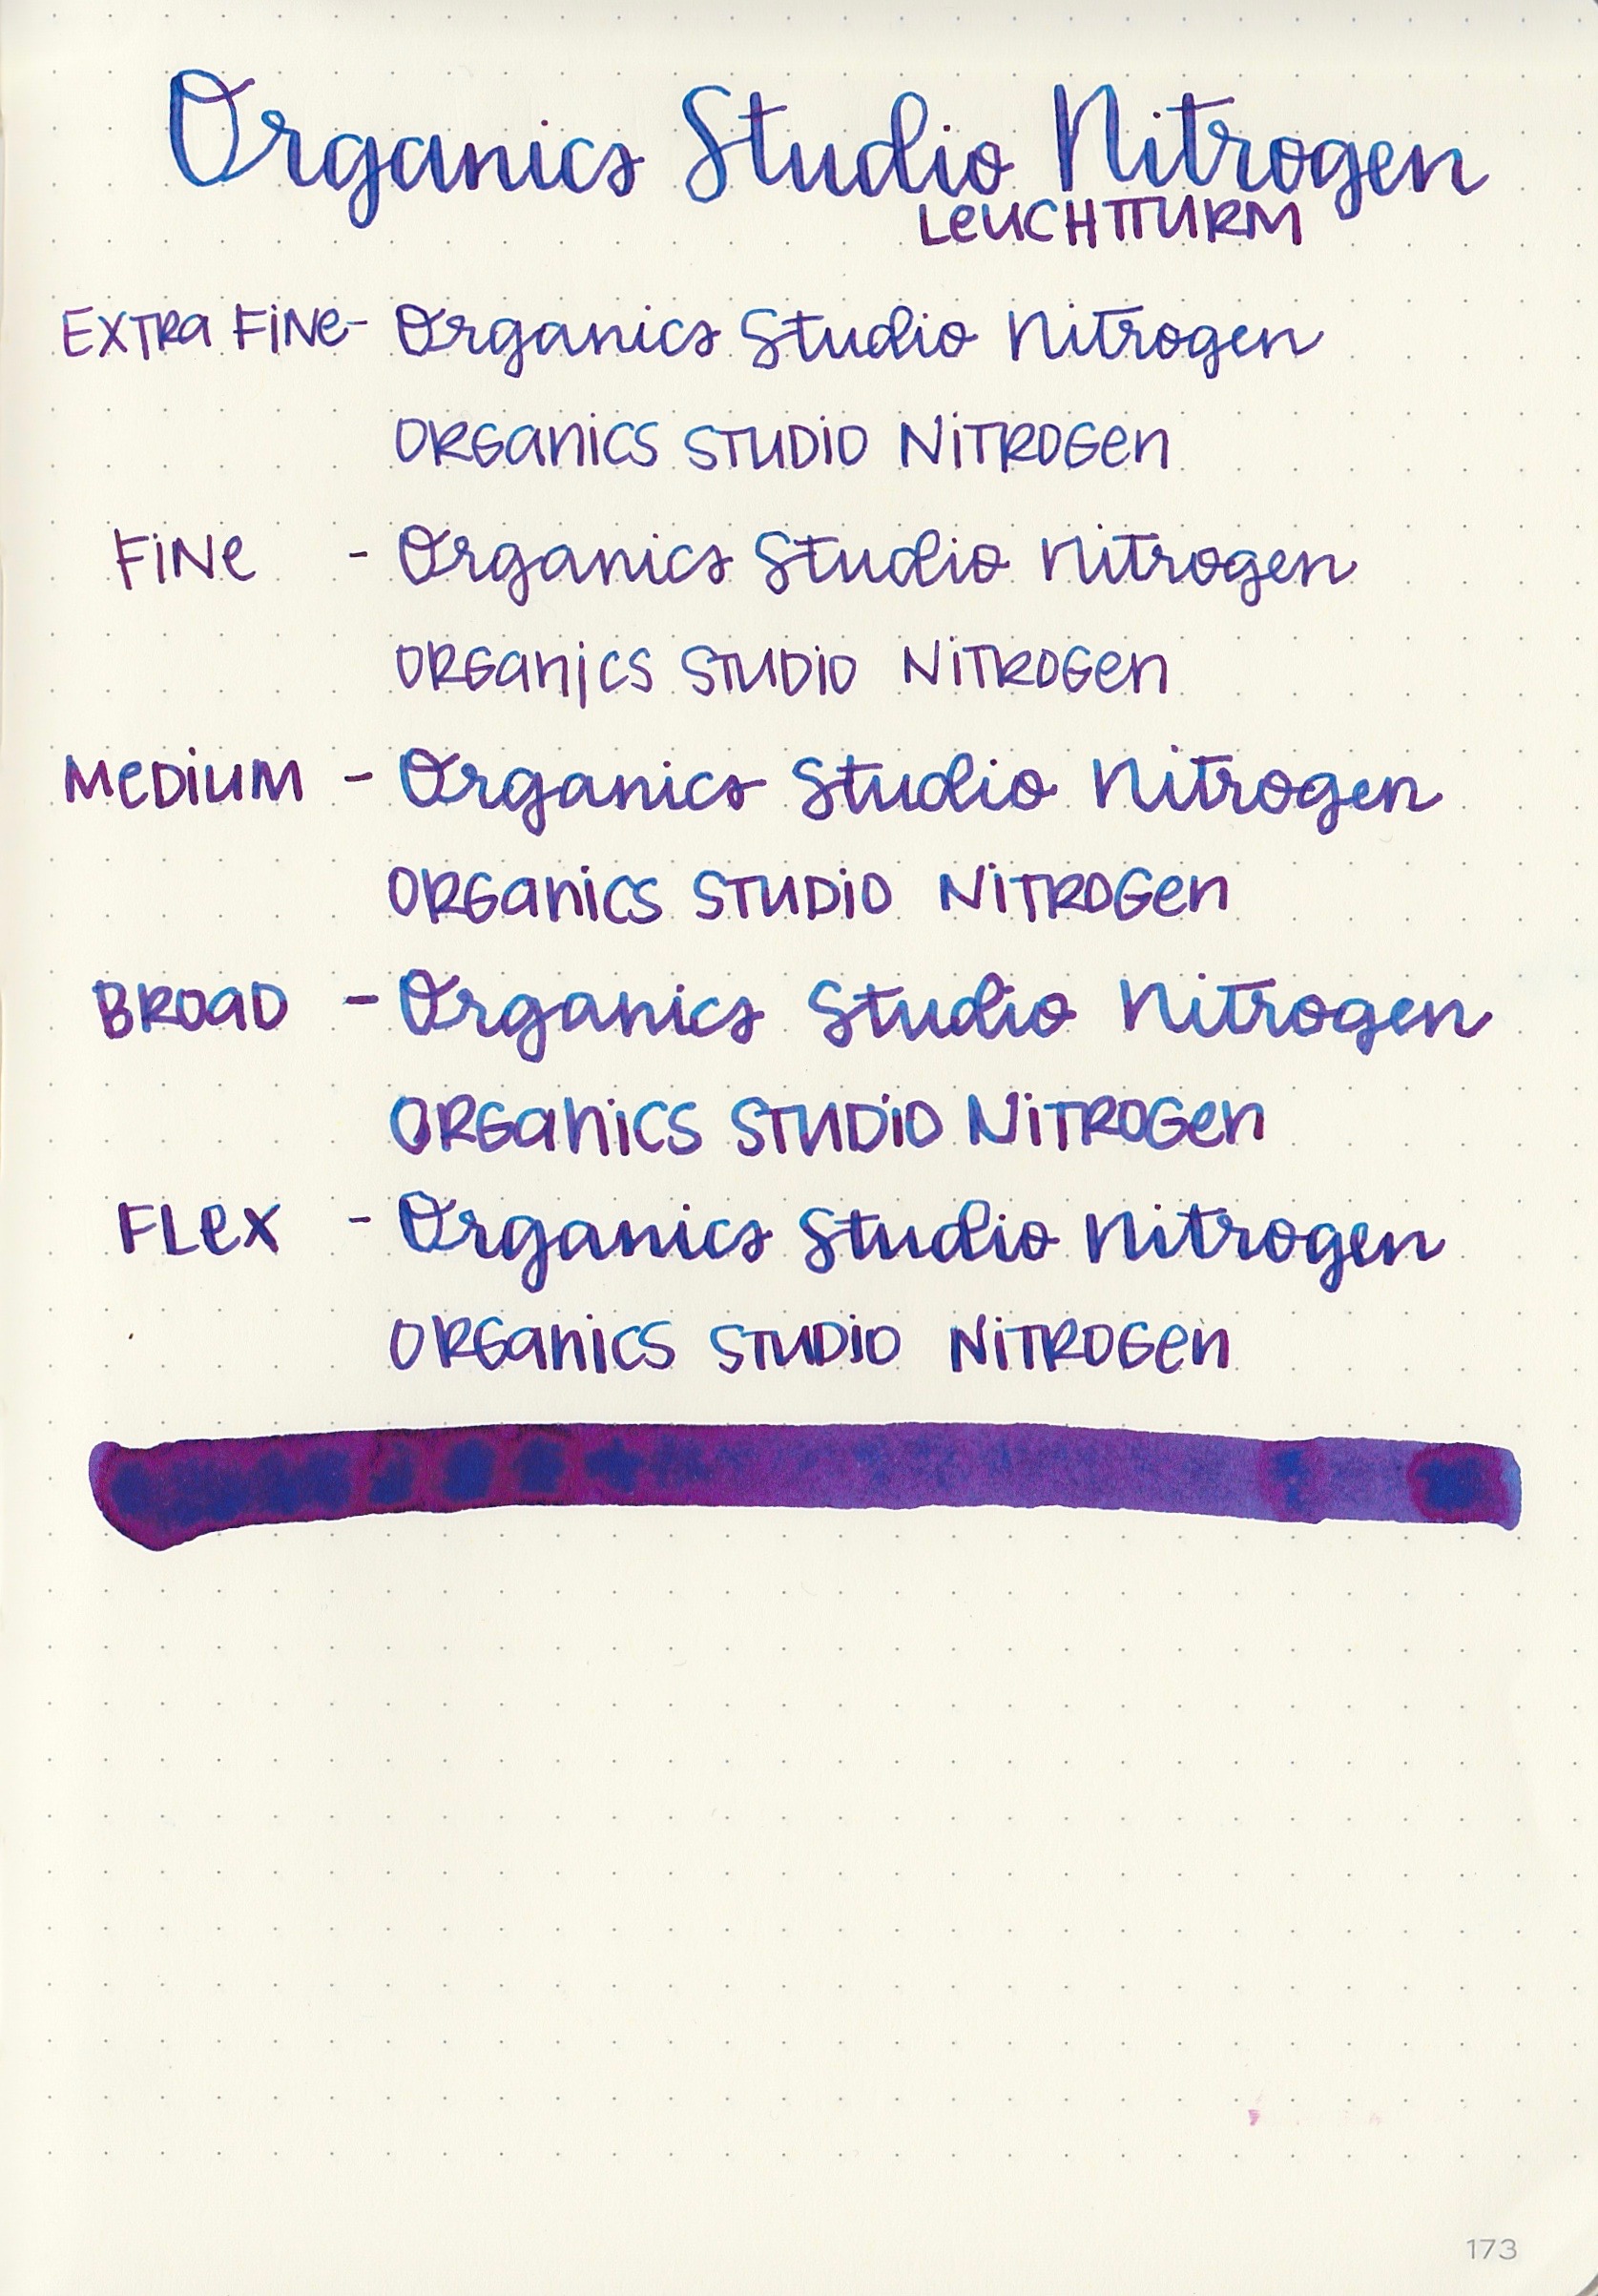 Organics Studio Nitrogen
LeUCHTTURM
EXTRa FiNe- Organics Studio Nitrogen
ORGanics STUDiO NiTROGen
FiNe - Organics Studio Nitrogen
ORGanics STUDiO NiTROGen
MeDiUM - Organics Studio Nitrogen
ORGanics STUDiO NiTROGen
BROaD - Organics Studio Nitrogen
ORGanics STUDiO NiTROGen
FLeX - Organics Studio Nitrogen
ORGanics STUDiO NiTROGen
173